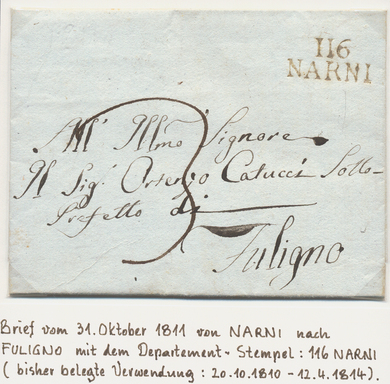 116
NARNI
All' Illmo Signore
Il Sig.r Ortenzio Calucci Sotto-
Prefetto di
Fuligno
3
Brief vom 31. Oktober 1811 von NARNI nach
FULIGNO mit dem Departement-Stempel: 116 NARNI
(bisher belegte Verwendung: 20.10.1810 - 12.4.1814).